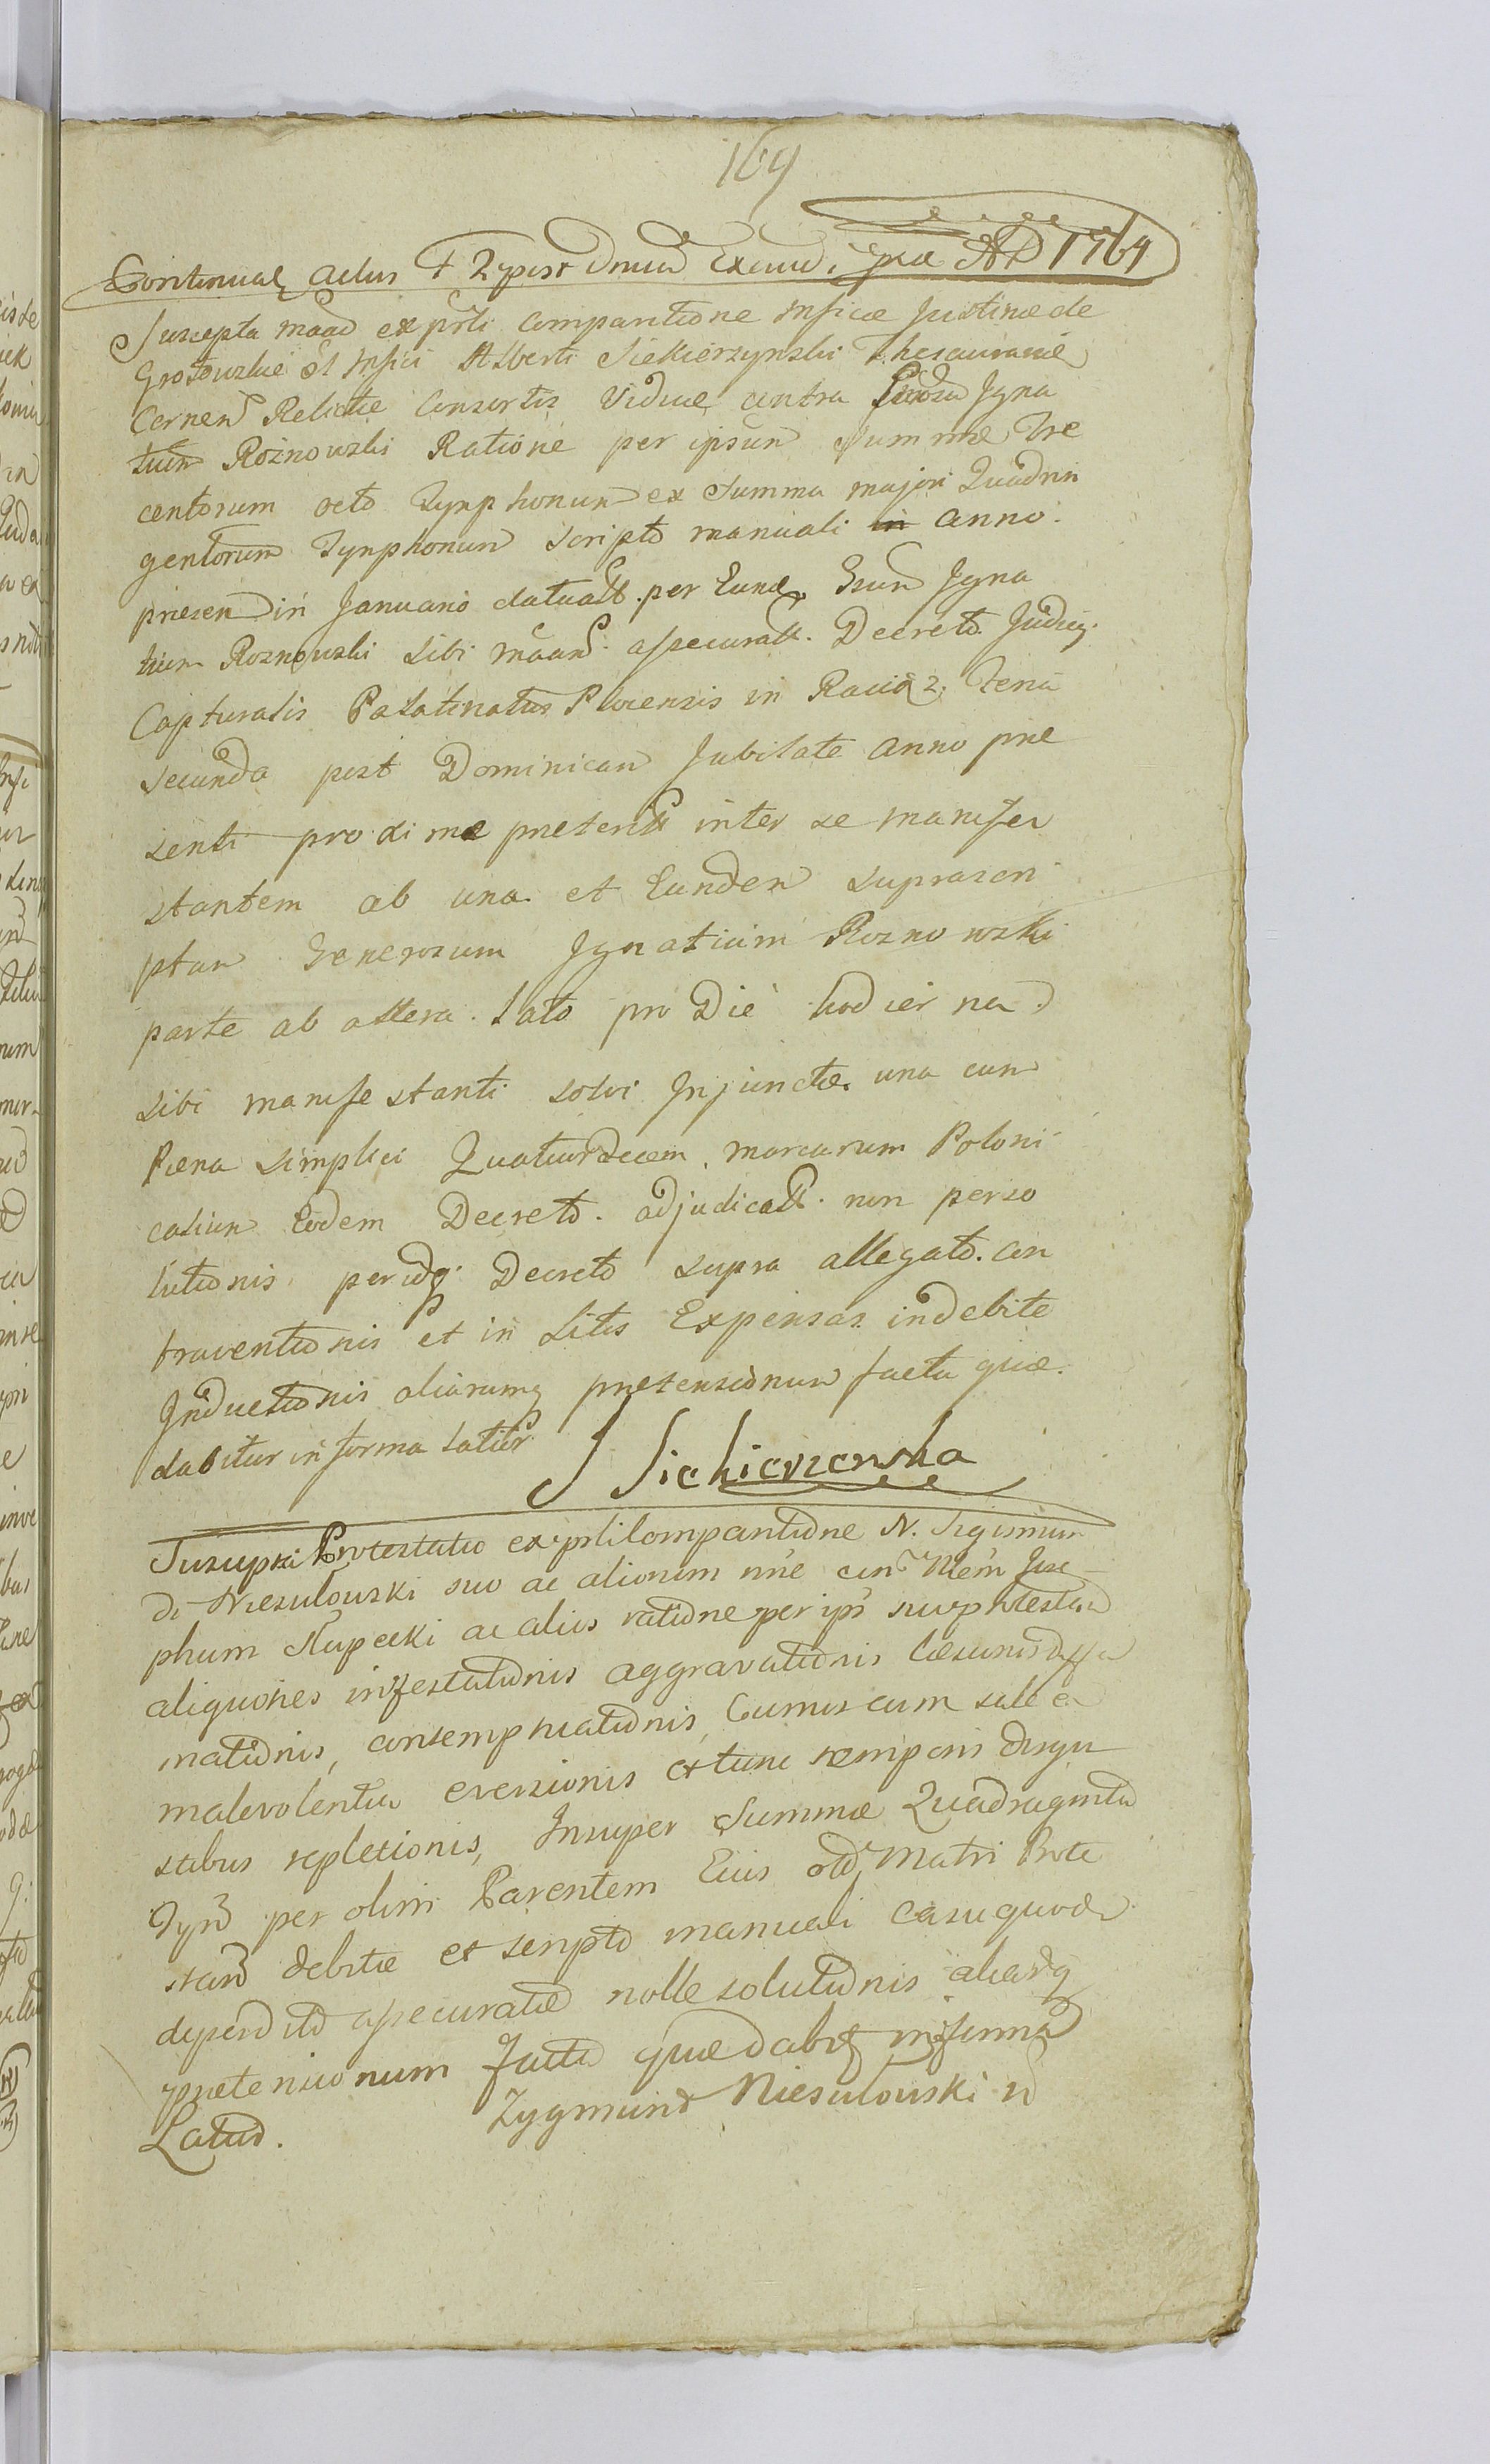 169
Continuat Actus F 2 post Dnicã Exaud. ipse AD 1764
Suscepta maao ex prti comparitione Mficae Justinae de
Grotowskie ol Mfici Alberti Siekierzynski Thesaurarii
Cernen Relictae consortis Viduae contra Gnosũ Igna
tium Roznowski Ratione per ipsum Summae Tre
centorum octo Tynphonum ex Summa majori Quadrin
gentorum Tynphonum scripto manuali in anno
praesen in Januario datuatt. per Eund. Gsum Igna
tium Roznowski sibi maan. assecuratt. Decreto Judicÿ.
Capturalis Palatinatus Plocensis in Raciąz. Feria
secunda post Dominicam Jubilate anno prae
senti proxime praeteritt inter se manife
stantem ab una et Eundem suprascri
ptum Generosum Ignatium Roznowski
parte ab altera. Lato pro Die hodierna
sibi manifestanti solvi Injunctae. una cum
Paena simplici Quatuordecem. marcarum Poloni
calium Eodem Decreto. adjudicatt. non perso
lutionis perindq. Decreto supra allegato. con
traventionis et in Litis Expensas indebite
Inductionis aliarumq praetensionum facta quae.
dabitur in forma Latior
J Siekierzenska
Suscepta Protestatio ex prti Compantione N. Sigismun
di Niesulowski suo ac aliorum nne con Nlem Jose
phum Slupecki ac alios ratione per ips suo protestan
aliquoties infestationis aggravationis laesionis diffa
mationis, contemptuationis, Cumis cum sale ex
malevolentia eversionis et tunc temporis disgu
stibus repletionis, Insuper Summae Quadraginta
Tyn per olim Parentem Eius old Matri Prote
stan debitae et scripto manuali casu quodã
deperdito assecuratae nolle solutionis aliarq
praetensionum facta quae dabit in forma
Latio.
Zygmunt Niesulowski m